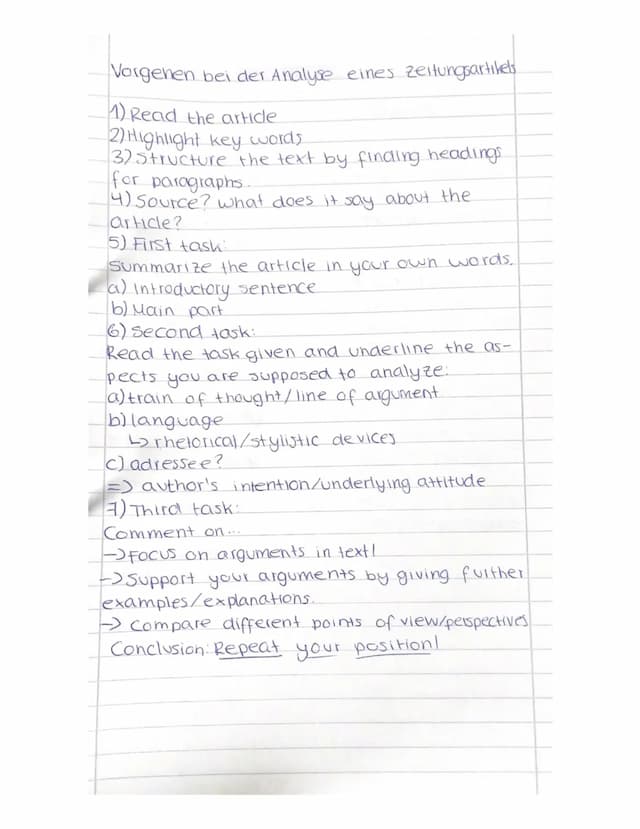 Vorgehen bei der Analyse eines Zeitungsartikels
1) Read the article
2) Highlight key words
3) Structure the text by finding headings
for paragraphs.
4) Source? What does it say about the
article?
5) First task:
Summarize the article in your own words.
a) Introductory sentence
b) Main part
6) Second task:
Read the task given and underline the as-
pects you are supposed to analyze:
a) train of thought/line of argument
b) language
↳ rhetorical/stylistic devices
c) adressee?
=> author's intention/underlying attitude
7) Third task:
Comment on...
→ Focus on arguments in text!
→ Support your arguments by giving further
examples/explanations.
→ Compare different points of view/perspectives
Conclusion: Repeat your position!